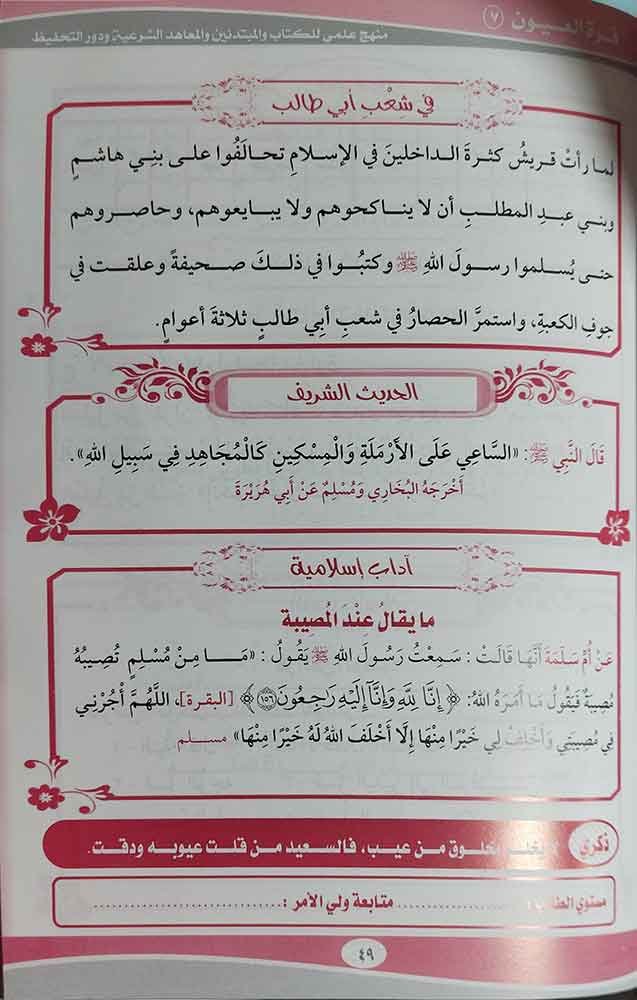 قرة العيون ٧
منهج علمي للكتاب والمبتدئين والمعاهد الشرعية ودور التحفيظ
في شعْبِ أبي طالب
لما رأتْ قريشُ كثرةَ الداخلينَ في الإسلامِ تحالَفُوا على بنِي هاشمٍ
وبني عبدِ المطلبِ أن لا يناكحوهم ولا يبايعوهم، وحاصروهم
حتى يُسلموا رسولَ اللهِ ﷺ وكتبُوا في ذلكَ صحيفةً وعلقت في
جوفِ الكعبةِ، واستمرَّ الحصارُ في شعبِ أبِي طالبٍ ثلاثةَ أعوامٍ.
الحديث الشريف
قَالَ النَّبِي ﷺ: «السَّاعِي عَلَى الأَرْمَلَةِ وَالْمِسْكِينِ كَالْمُجَاهِدِ فِي سَبِيلِ اللهِ».
أَخْرَجَهُ البُخَارِي وَمُسْلِمٌ عَنْ أَبِي هُرَيْرَةَ
آداب إسلامية
ما يقالُ عِنْدَ المُصِيبة
عَنْ أُمِّ سَلَمَةَ أَنَّهَا قَالَتْ: سَمِعْتُ رَسُولَ اللهِ ﷺ يَقُولُ: «مَا مِنْ مُسْلِمٍ تُصِيبُهُ
مُصِيبَةٌ فَيَقُولُ مَا أَمَرَهُ اللهُ: ﴿إِنَّا لِلَّهِ وَإِنَّآ إِلَيْهِ رَٰجِعُونَ ١٥٦﴾ [البقرة]، اللَّهُمَّ أْجُرْنِي
فِي مُصِيبَتِي وَأَخْلِفْ لِي خَيْرًا مِنْهَا إِلَّا أَخْلَفَ اللهُ لَهُ خَيْرًا مِنْهَا» مسلم
ذكرى لا يخلو مخلوق من عيب، فالسعيد من قلت عيوبه ودقت.
مستوى الطالب: .................... متابعة ولي الأمر: ....................
٤٩